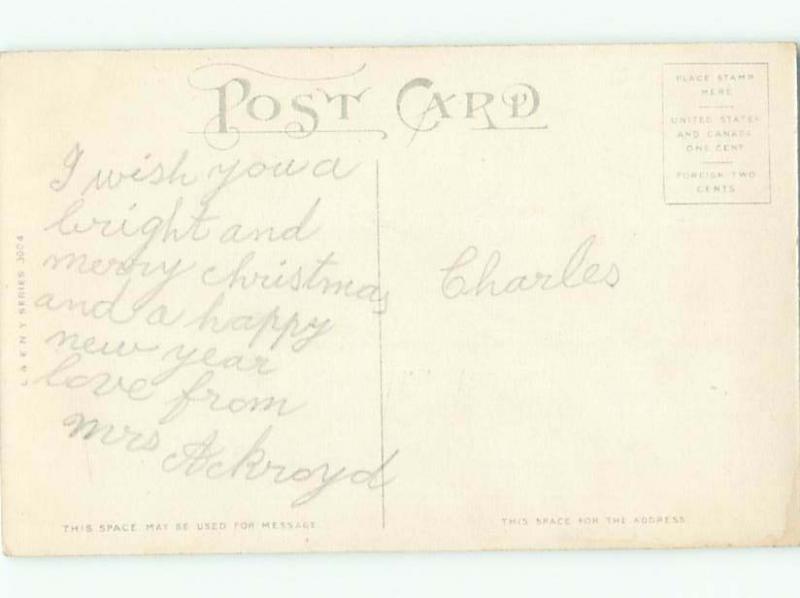 POST CARD
PLACE STAMP
HERE
UNITED STATES
AND CANADA
ONE CENT
FOREIGN TWO
CENTS
I wish you a
bright and
merry christmas
and a happy
new year
love from
mrs Ackroyd
Charles
L & E N Y SERIES 3004
THIS SPACE MAY BE USED FOR MESSAGE
THIS SPACE FOR THE ADDRESS